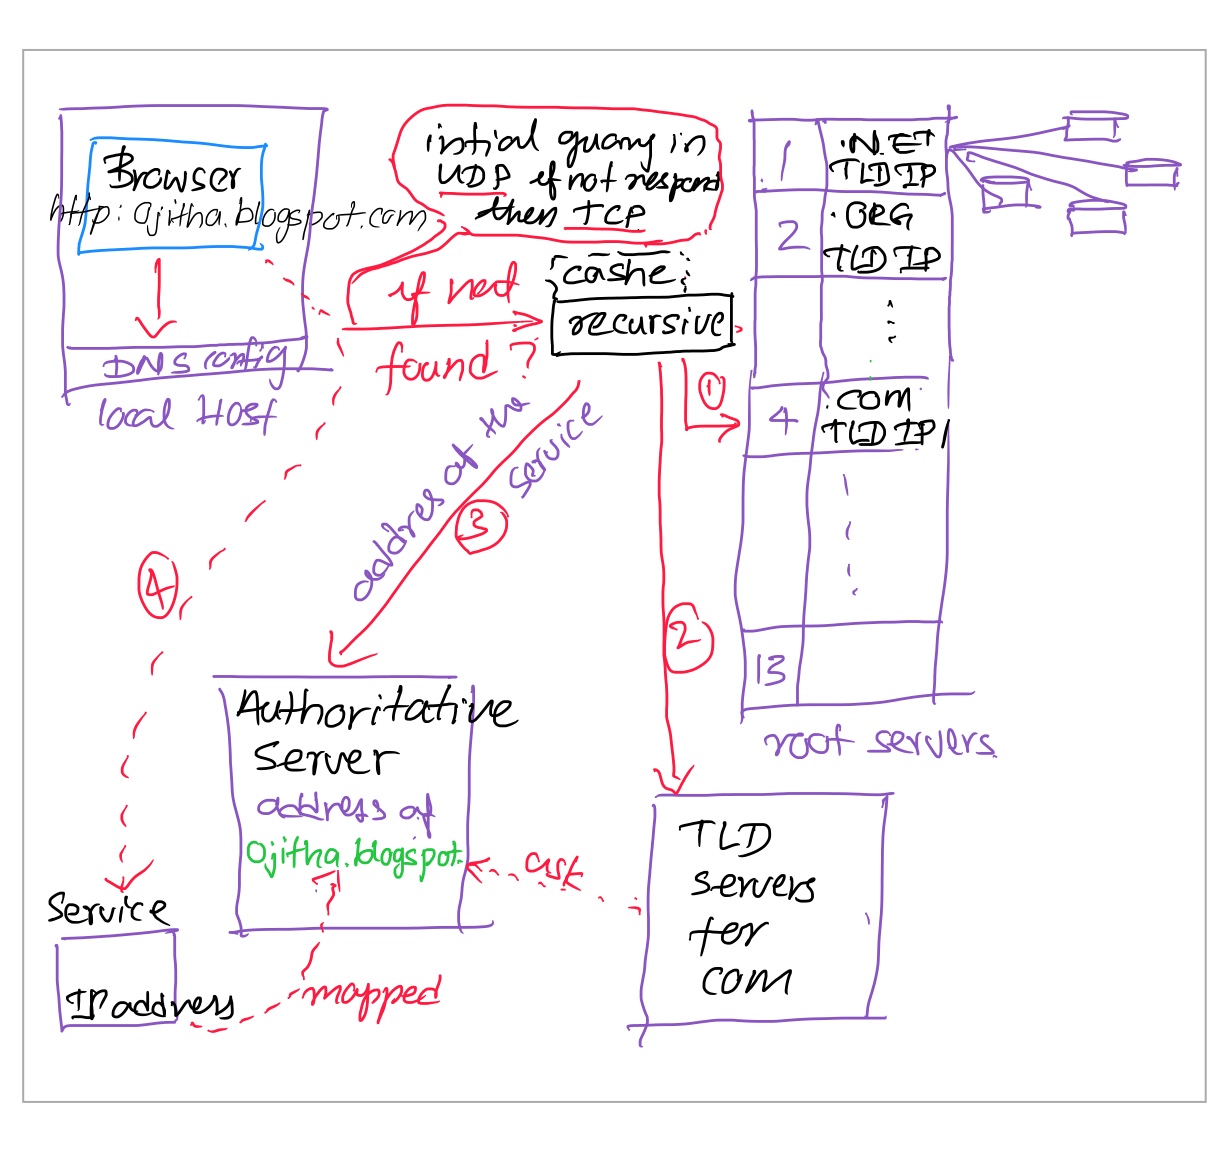 Browser
http: Ojitha.blogspot.com
DNS config
local Host
intial quary in
UDP if not respond
then TCP
if not
found ?
cashe
recursive
1
.NET
TLD IP
2
.ORG
TLD IP
4
.COM
TLD IP
13
root servers
1
2
addres of the
service
3
4
Authoritative
Server
address of
Ojitha.blogspot.
ask
TLD
servers
for
COM
Service
IP address
mapped